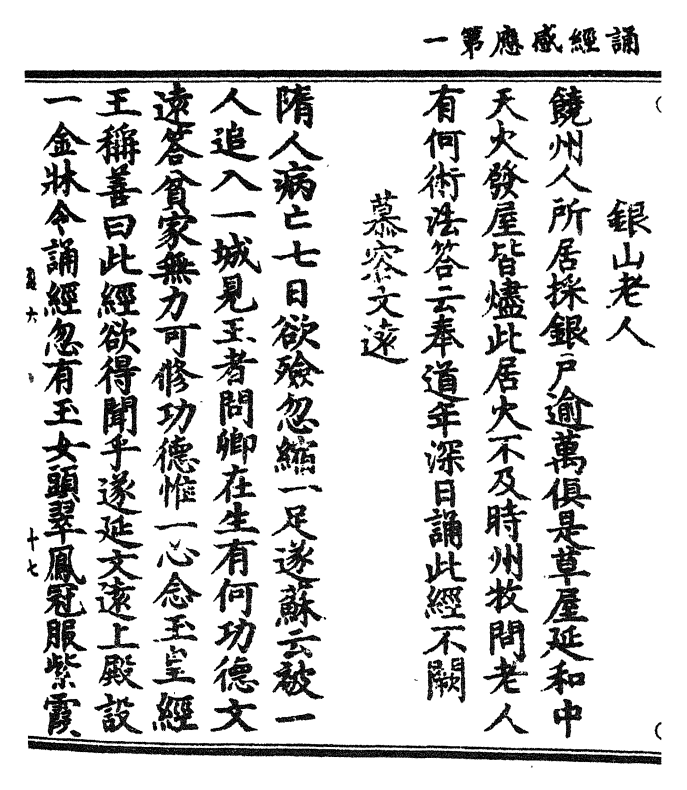 誦經感應第一
銀山老人
饒州人所居採銀戶逾萬俱是草屋延和中
天火發屋皆燼此居火不及時州牧問老人
有何術法答云奉道年深日誦此經不闕
慕容文遠
隋人病亡七日欲殮忽縮一足遂蘇云被一
人追入一城見王者問卿在生有何功德文
遠答貧家無力可修功德惟一心念玉皇經
王稱善曰此經欲得聞乎遂延文遠上殿設
一金牀令誦經忽有玉女頭翠鳳冠服紫霞
六
十七